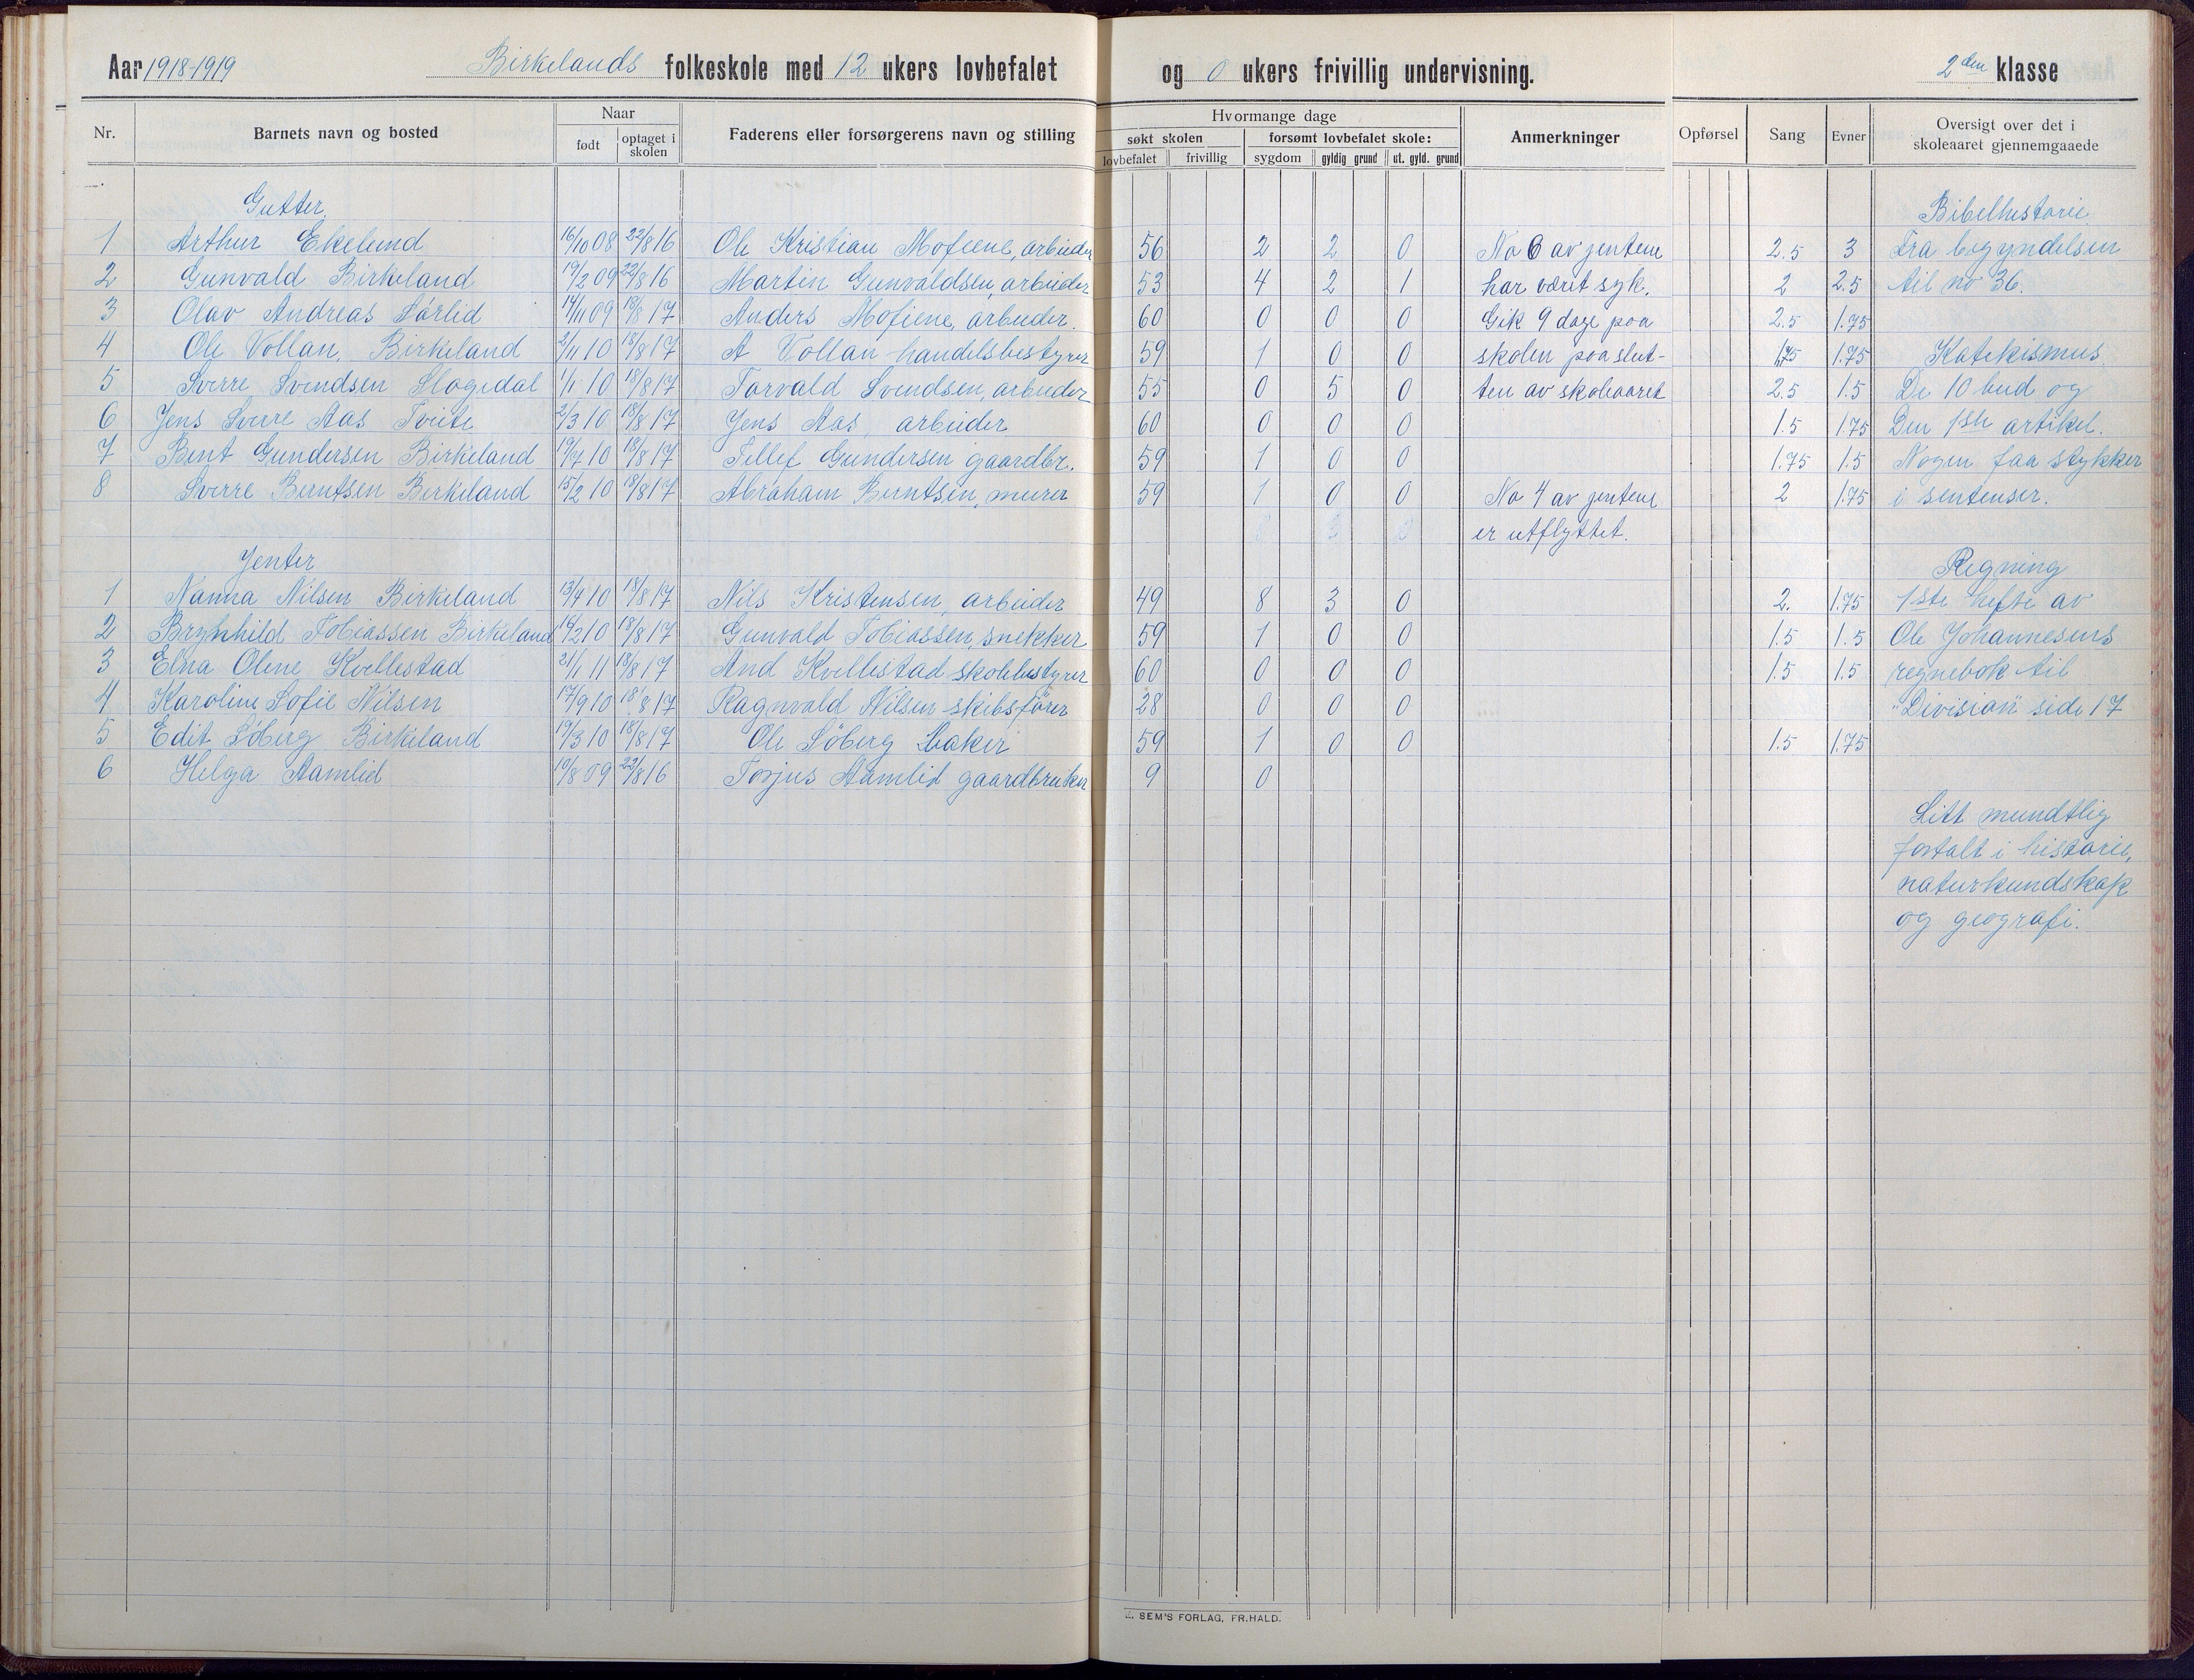 Aar 1918-1919 Birkelands folkeskole med 12 ukers lovbefalet og 0 ukers frivillig undervisning. 2den klasse
Nr. Barnets navn og bosted Naar født optaget i skolen Faderens eller forsørgerens navn og stilling Hvormange dage søkt skolen lovbefalet frivillig forsømt lovbefalet skole: sygdom gyldig grund ut. gyld. grund Anmerkninger Opførsel Sang Evner Oversigt over det i skoleaaret gjennemgaaede
Gutter. Bibelhistorie
1 Arthur Ekelund 16/10 08 22/8 16 Ole Kristian Mofiene, arbeider 56 2 2 0 No 6 av jentene 2.5 3 Fra begyndelsen
2 Gunvald Birkeland 19/2 09 22/8 16 Martin Gunvaldsen, arbeider 53 4 2 1 har været syk. 2 2.5 til no 36.
3 Olav AndreasFørlid 14/11 09 18/8 17 Anders Mofiene, arbeider. 60 0 0 0 Gik 9 dage paa 2.5 1.75
4 Ole Vollan, Birkeland 2/11 10 18/8 17 A Vollan handelsbestyrer 59 1 0 0 skolen paa slut- 1.75 1.75 Katekismus.
5 Sverre Svendsen Slogedal 1/1 10 18/8 17 Torvald Svendsen, arbeider 55 0 5 0 ten av skoleaaret 2.5 1.5 De 10 bud og
6 Jens Sverre Aas Tveite 2/3 10 18/8 17 Jens Aas, arbeider 60 0 0 0 1.5 1.75 Den 1ste artikel.
7 Bent Gundersen Birkeland 19/7 10 18/8 17 Tellef Gundersen gaardbr. 59 1 0 0 1.75 1.5 Nogen faa stykker
8 Sverre Berntsen Birkeland 15/2 10 18/8 17 Abraham Berntsen, murer 59 1 0 0 No 4 av jentene 2 1.75 i sentenser.
er utflyttet.
Jenter Regning
1 Nanna Nilsen Birkeland 13/4 10 18/8 17 Nils Kristensen, arbeider 49 8 3 0 2. 1.75 1ste hefte av
2 Brynhild Tobiassen Birkeland 14/2 10 18/8 17 Gunvald Tobiassen, snekker 59 1 0 0 1.5 1.5 Ole Johannesens
3 Elna Olene Kvellestad 21/1 11 18/8 17 And Kvellestad skolebestyrer 60 0 0 0 1.5 1.5 regnebok til
4 Karoline Sofie Nilsen 17/9 10 18/8 17 Ragnvald Nilsen skibsfører 28 0 0 0 "Division" side 17
5 Edit Søberg Birkeland 19/3 10 18/8 17 Ole Søberg baker 59 1 0 0 1.5 1.75
6 Helga Aamlid 10/8 09 22/8 16 Torjus Aamlid gaardbruker 9 0
Litt mundtlig
fortalt i historie,
naturkundskap
og geografi.
SEM'S FORLAG, FR. HALD.